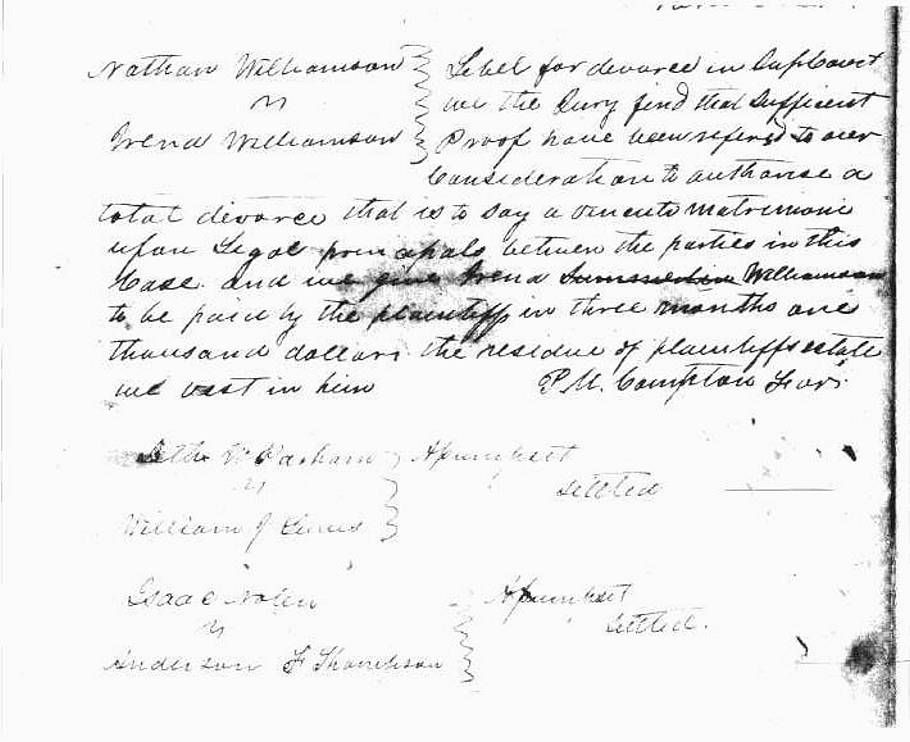 Nathan Williamson
vs
Irena Williamson
Libel for devorce in Sup Court
we the Jury find that Sufficient
Proof have been refered to our
Consideration to authorise a
total devorce that is to say a vincule matrimoni
upon Legal principals between the parties in this
Case. and we give Irena Williamson
to be paid by the plaintiff in three months one
thousand dollars the residue of plaintiffs estate
we vest in him
P. M. Compton For.
Assumpsit
vs
settled
William J
Isaac Nolen
vs
Anderson F Thompson
Assumpsit
settled.